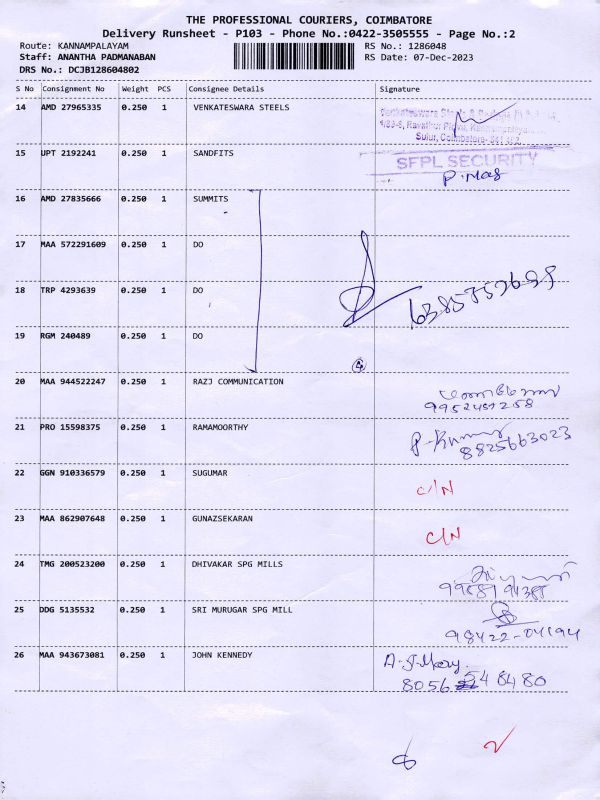 THE PROFESSIONAL COURIERS, COIMBATORE
Delivery Runsheet - P103 - Phone No.:0422-3505555 - Page No.:2
Route: KANNAMPALAYAM RS No.: 1286048
Staff: ANANTHA PADMANABAN RS Date: 07-Dec-2023
DRS No.: DCJB128604802
S No Consignment No Weight PCS Consignee Details Signature
14 AMD 27965335 0.250 1 VENKATESWARA STEELS
Sulur, Coimbatore-
15 UPT 2192241 0.250 1 SANDFITS SFPL SECURITY
16 AMD 27835666 0.250 1 SUMMITS
17 MAA 572291609 0.250 1 DO
18 TRP 4293639 0.250 1 DO
19 RGM 240489 0.250 1 DO
4
20 MAA 944522247 0.250 1 RAZJ COMMUNICATION
21 PRO 15598375 0.250 1 RAMAMOORTHY P-Kumar
8825663023
22 GGN 910336579 0.250 1 SUGUMAR C/N
23 MAA 862907648 0.250 1 GUNAZSEKARAN C/N
24 TMG 200523200 0.250 1 DHIVAKAR SPG MILLS
25 DDG 5135532 0.250 1 SRI MURUGAR SPG MILL
98422-04194
26 MAA 943673081 0.250 1 JOHN KENNEDY A-J-Mary.
8056 548480